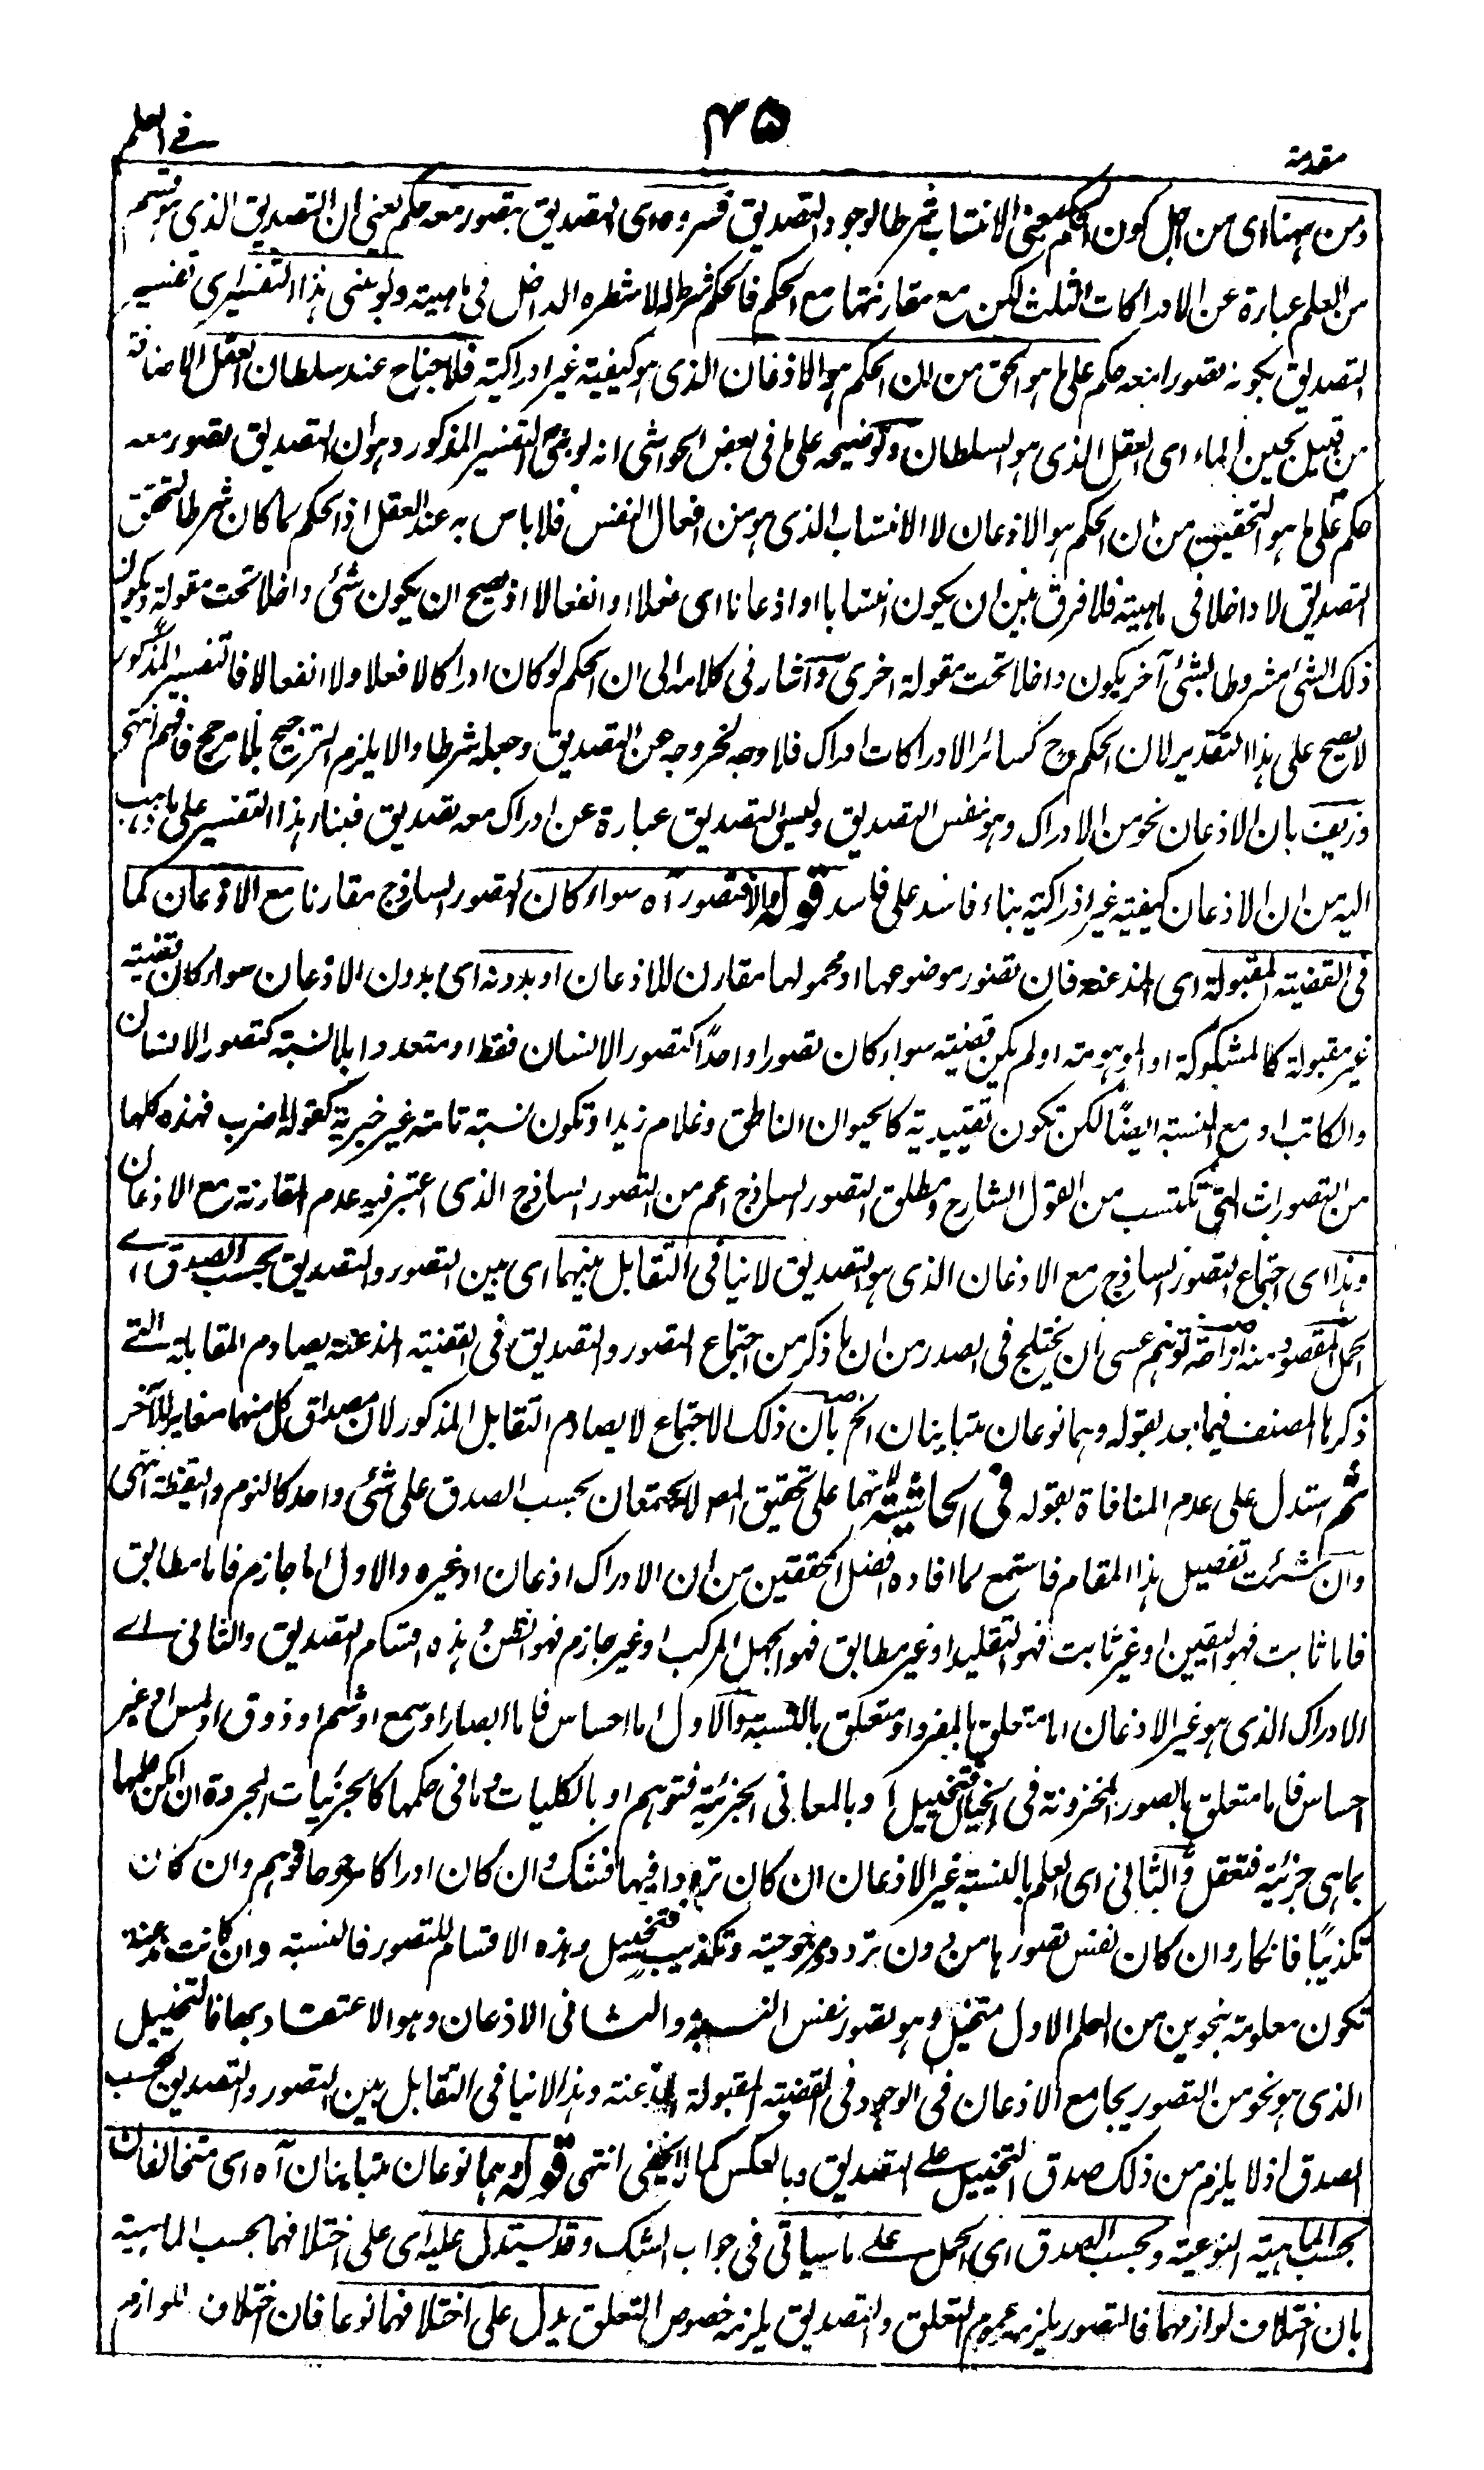 مقدمة
٤٥
في العلم
ومن ههنا اى من اجل كون الحكم بمعنى الانتساب شرطا لوجود التصديق فسروه اى التصديق بتصور معه حكم يعنى ان التصديق الذى هو قسم
من العلم عبارة عن الادراكات الثلث لكن مع مقارنتها مع الحكم فالحكم شرط له لا شطره الداخل فى ماهيته ولو بنى هذا التفسير اى تفسير
التصديق بكونه تصورا معه حكم على ما هو الحق من ان الحكم هو الاذعان الذى هو كيفية غير ادراكية فلا جناح عند سلطان العقل الاضافة
من قبيل لجين الماء اى العقل الذى هو السلطان وتوضيحه على ما فى بعض الحواشى انه لو بنى التفسير المذكور وهو ان التصديق تصور معه
حكم على ما هو التحقيق من ان الحكم هو الاذعان لا الانتساب الذى هو من افعال النفس فلا باس به عند العقل اذ الحكم لما كان شرطا لتحقق
التصديق لا داخلا فى ماهيته فلا فرق بين ان يكون انتسابا او اذعانا اى فعلا او انفعالا اذ يصح ان يكون شئ داخلا تحت مقولة ويكون
ذلك الشئ مشروطا بشئ آخر يكون داخلا تحت مقولة اخرى واشار فى كلامه الى ان الحكم لو كان ادراكا لا فعلا ولا انفعالا فالتفسير المذكور
لا يصح على هذا التقدير لان الحكم ح كسائر الادراكات ادراك فلا وجه لخروجه عن التصديق وجعله شرطا والا يلزم الترجيح بلا مرجح فافهم انتهى
وزيف بان الاذعان نحو من الادراك وهو نفس التصديق وليس التصديق عبارة عن ادراك معه تصديق فبناء هذا التفسير على ما ذهب
اليه من ان الاذعان كيفية غير ادراكية بناء فاسد على فاسد قوله والا فتصور آه سواء كان التصور الساذج مقارنا مع الاذعان كما
فى القضية المقبولة اى المذعنة فان تصور موضوعها او محمولها مقارن للاذعان او بدونه اى بدون الاذعان سواء كان قضية
غير مقبولة كالمشكوكة او الموهومة او لم يكن قضية سواء كان تصورا واحدًا كتصور الانسان فقط او متعددا بلا نسبة كتصور الانسان
والكاتب او مع النسبة ايضًا لكن تكون تقييدية كالحيوان الناطق وغلام زيد او تكون نسبة تامة غير خبرية كقولك اضرب فهذه كلها
من التصورات التى تكتسب من القول الشارح ومطلق التصور الساذج اعم من التصور الساذج الذى اعتبر فيه عدم المقارنة مع الاذعان
وهذا اى اجتماع التصور الساذج مع الاذعان الذى هو التصديق لا ينافى التقابل بينهما اى بين التصور والتصديق بحسب الصدق اے
الحمل المقصود منه ازاحة توهم عسى ان يختلج فى الصدر من ان ما ذكر من اجتماع التصور والتصديق فى القضية المذعنة يصادم المقابلة التے
ذكرها المصنف فيما بعد بقوله وهما نوعان متباينان الخ بان ذلك الاجتماع لا يصادم التقابل المذكور لان مصداق كل منهما مغاير للآخر
ثم استدل على عدم المنافاة بقوله فى الحاشية لانهما على تحقيق المص لا يجتمعان بحسب الصدق على شئ واحد كالنوم واليقظة انتهى
وان شئت تفصيل هذا المقام فاستمع لما افاده افضل المحققين من ان الادراك اذعان او غيره والاول اما جازم فاما مطابق
فاما ثابت فهو اليقين او غير ثابت فهو التقليد او غير مطابق فهو الجهل المركب او غير جازم فهو الظن وهذه اقسام التصديق والثانى اے
الادراك الذى هو غير الاذعان اما متعلق بالمفرد او متعلق بالنسبة والاول اما احساس فاما ابصار او سمع او شم او ذوق او لمس او غير
احساس فاما متعلق بالصور المخزونة فى الخيال فتخييل او بالمعانى الجزئية فتوهم او بالكليات وما فى حكمها كالجزئيات المجردة ان امكن علمها
بما هى جزئية فتعقل والثانى اى العلم بالنسبة غير الاذعان ان كان ترددا فيها فشك وان كان ادراكا مرجوحا فوهم وان كان
تكذيبًا فانكار وان كان نفس تصورها من دون تردد ومرجوحية وتكذيب فتخييل وهذه الاقسام للتصور فالنسبة وان كانت مذعنة
تكون معلومة بنحوين من العلم الاول متخيل وهو تصور نفس النسبة والثانى الاذعان وهو الاعتقاد بها فالتخييل
الذى هو نحو من التصور يجامع الاذعان فى الوجود فى القضية المقبولة المذعنة وهذا لا ينافى التقابل بين التصور والتصديق بحسب
الصدق اذ لا يلزم من ذلك صدق التخييل على التصديق وبالعكس كما لا يخفى انتهى قوله وهما نوعان متباينان آه اى متخالفان
بحسب الماهية النوعية وبحسب الصدق اى الحمل على ما سياتى فى جواب الشك وقد يستدل عليه اى على اختلافهما بحسب الماهية
بان اختلاف لوازمهما فالتصور يلزمه عموم التعلق والتصديق يلزمه خصوص التعلق يدل على اختلافهما نوعا فان اختلاف اللوازم